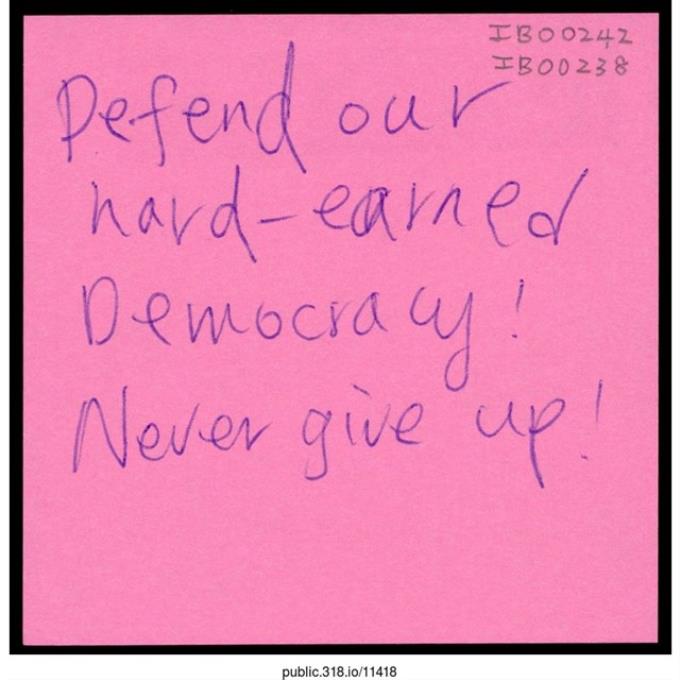 IB00242
IB00238
Defend our
hard-earned
Democracy!
Never give up!
public.318.io/11418